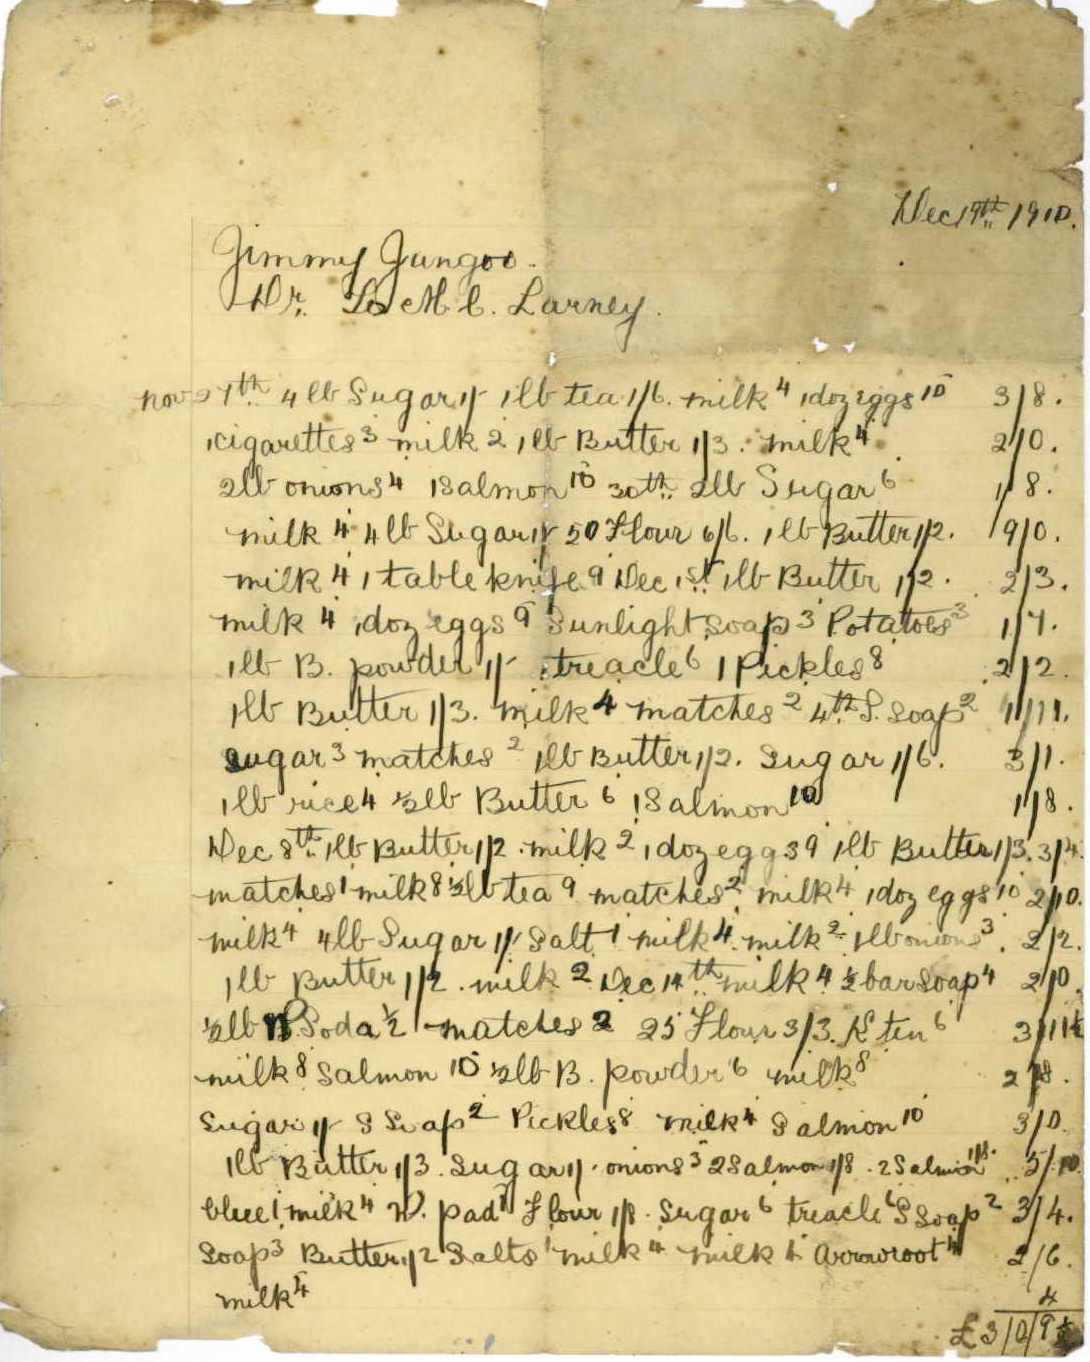 Dec 19th 1910.
Jimmy Jungoo.
Dr. To M C. Larney.
Nov 27th 4 lb Sugar 1/- 1lb tea 1/6. milk 4 1doz eggs 10 3/8.
1cigarettes 3 milk 2 1lb Butter 1/3. milk 4. 2/0.
2lb onions 4 1Salmon 10 30th 2lb Sugar 6 1/8.
milk 4 4lb Sugar 1/- 50 Flour 6/6. 1lb Butter 1/2. 9/0.
milk 4 1 table knife 9 Dec 1st 1lb Butter 1/2. 2/3.
milk 4 1doz eggs 9 Sunlight soap 3 Potatoes 3 1/7.
1lb B. powder 1/- 1treacle 6 1 Pickles 8 2/2.
1lb Butter 1/3. milk 4 matches 2 4th S. Soap 2 1/11.
sugar 3 matches 2 1lb Butter 1/2. Sugar 1/6. 3/1.
1lb rice 4 ½lb Butter 6 1Salmon 10 1/8.
Dec 8th 1lb Butter 1/2. milk 2 1doz eggs 9 1lb Butter 1/3. 3/4.
matches 1 milk 8 ½lb tea 9 matches 2 milk 4 1doz eggs 10 2/10.
milk 4 4lb Sugar 1/- Salt 1 milk 4 milk 2 1lb onions 3. 2/2.
1lb Butter 1/2. milk 2 Dec 14th milk 4 ½ bar Soap 4 2/0.
½lb Soda ½ matches 2 25 Flour 3/3. 6 3/11½
milk 8 Salmon 10 ½lb B. powder 6 milk 8 2/8.
Sugar 1/- S Soap 2 Pickles 8 milk 4 Salmon 10 3/0.
1lb Butter 1/3. Sugar 1/- onions 3 2Salmon 1/8. 2Salmon 1/8. 5/10.
blue 1 milk 4 W. pad Flour 1/8. Sugar 6 treacle 6 S Soap 2 3/4.
Soap 3 Butter 1/2 Salts 1 milk 4 milk 4 Arrowroot 4 2/6.
milk 4 4
£3/0/9½